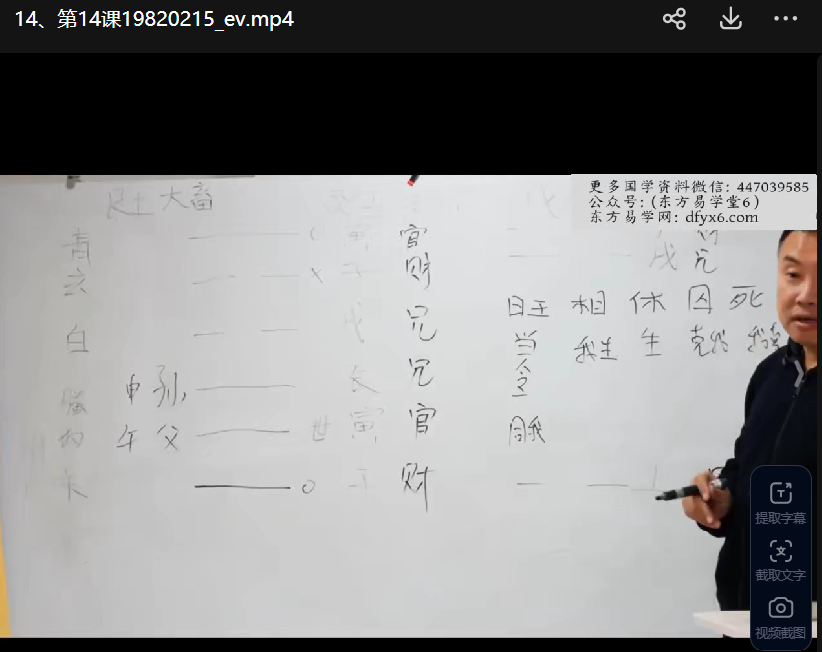 14、第14课19820215_ev.mp4
更多国学资料微信: 447039585
公众号:(东方易学堂6)
东方易学网: dfyx6.com
艮土大畜
青 寅 官
玄 × 子 财
戌 兄
白 戌 兄
旺 相 休 囚 死
当令 我生 生 克我 我克
申 孙 长 兄
勾 午 父 世 寅 官
同我
朱 子 财
提取字幕
截取文字
视频截图